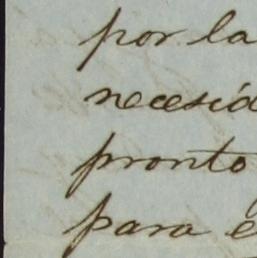 por la
necesid
pronto
para e